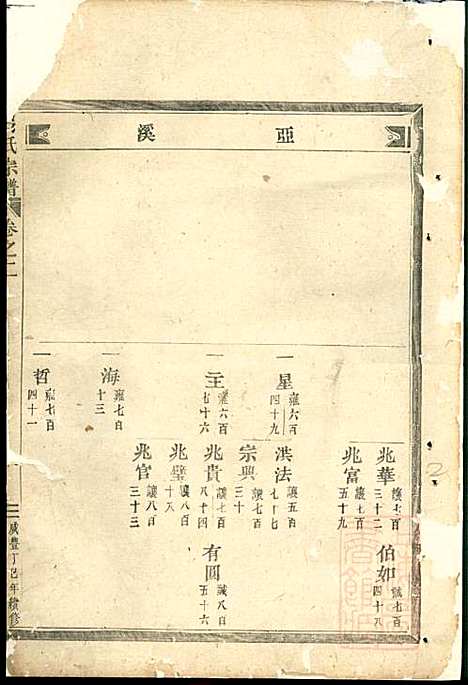 亞溪
兆華 讓七百三十二
伯如 誠七百四十八
兆富 讓七百五十九
一星 雍六百四十九
洪法 讓五百七十七
宗興 讓七百三十
一主 雍六百七十六
兆貴 讓七百八十四
有圓 誠八百五十六
兆璧 讓八百十八
兆官 讓八百三十三
一海 雍七百十三
一哲 雍七百四十一
氏宗譜 卷之二
咸豐丁巳年續修
2